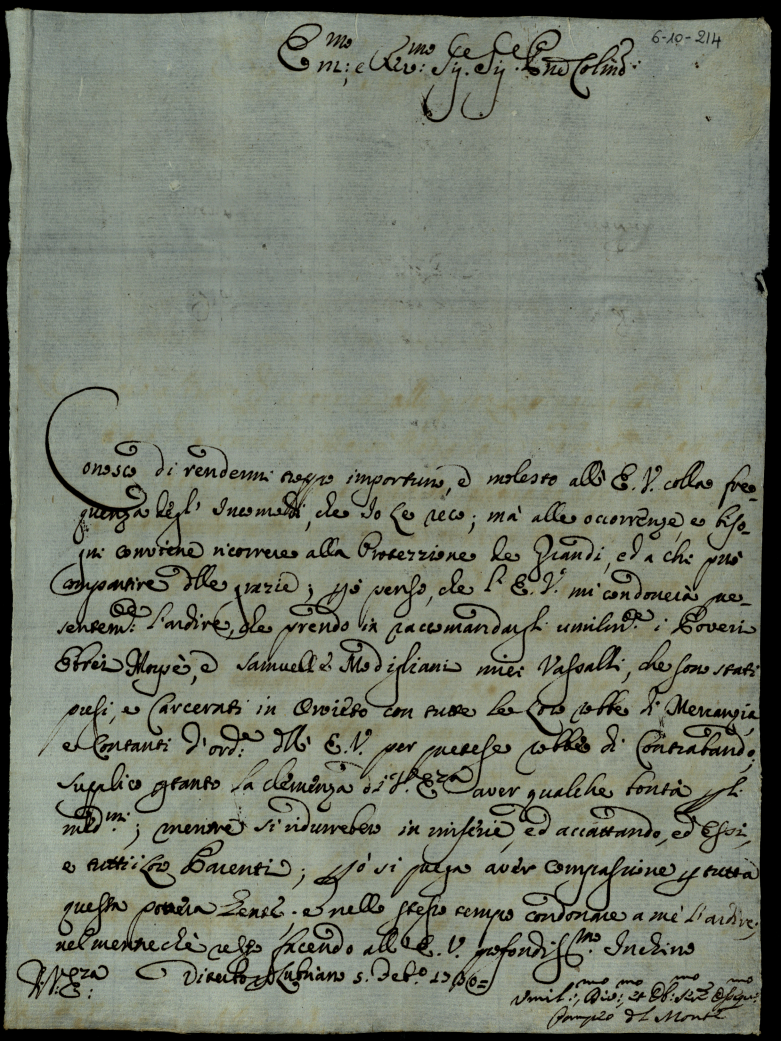 6-10-214
Em:mo e Rev:mo Sig. Sig. Pne Colmo
Conosco di rendermi troppo importuno, e molesto alla E. V. colla fre-
quenza degl' Incomodi, che Io Le reco; mà alle occorrenze, e biso-
gni conviene ricorrere alla Protezzione de Grandi, ed a chi può
Compartire delle grazie; però penso, che l' E. V. mi condonerà
l'ardire, che prendo in raccomandargli umilmte i Poveri
Ebrei Moysè, e Samuelle Modigliani miei Vassalli, che sono stati
presi, e Carcerati in Orvieto con tutte le Loro robbe di Mercanzia,
e Contanti d'orde dell' E. V. per pretese robbe di Contrabando;
Supplico ptanto la clemenza di V. Eza aver qualche bontà p li
medmi; mentre si ridurrebero in miserie, ed accattando, ed Essi,
e tutti i Loro Parenti; però si prega aver compassione p tutta
questa povera Gente. e nello stesso tempo condonare a mè l'ardire,
nel mentre chè resto facendo all' E. V. profondissmo Inchino
V. Eza Lubriano 5. Debo
Umilmo, Divmo, et Obmo
Pompeo del Monte